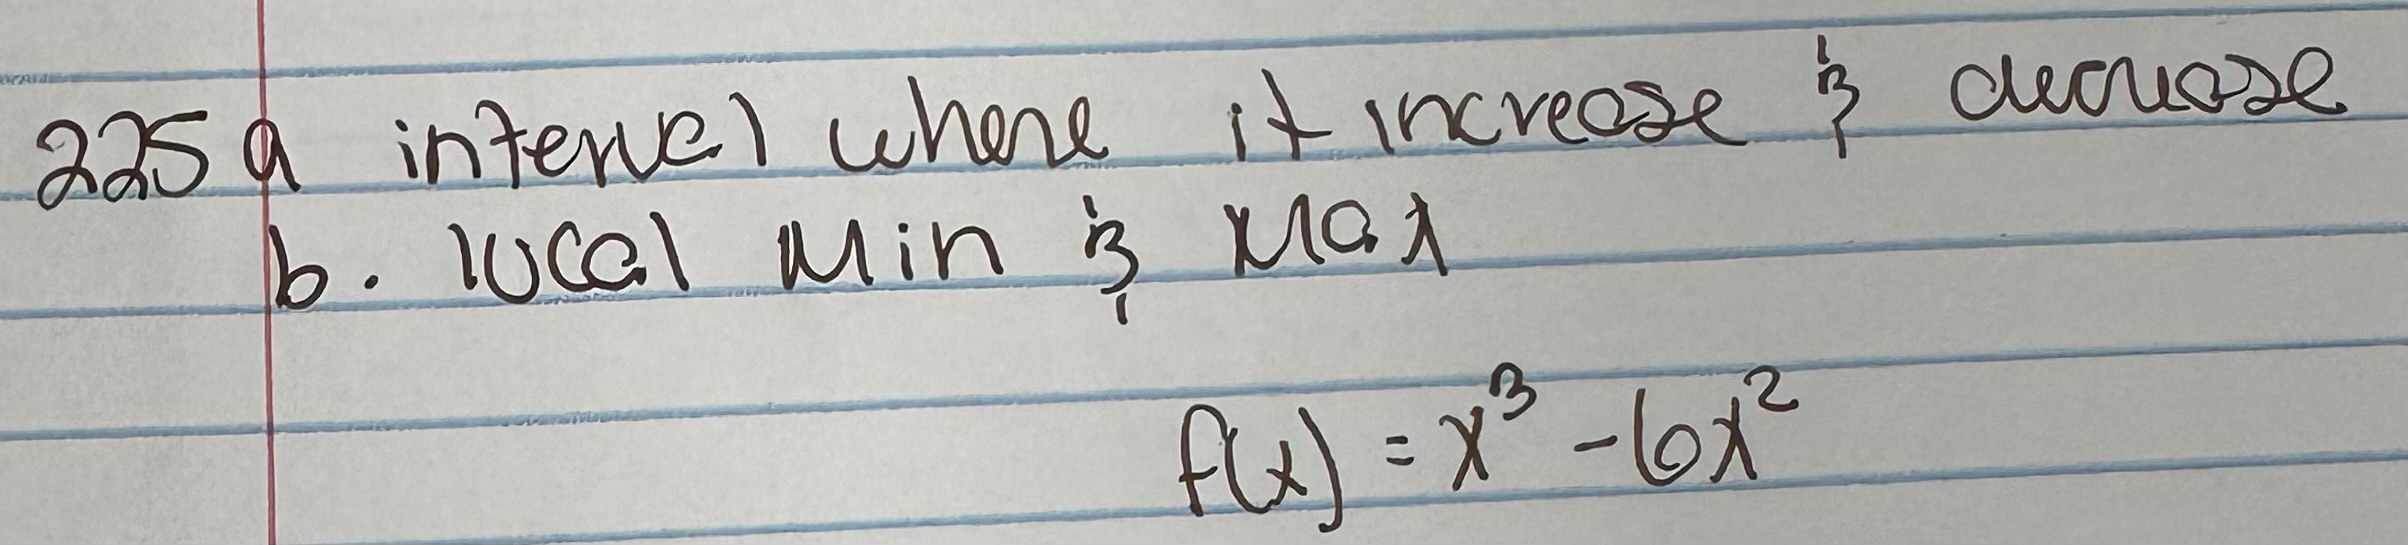 225 a interval where it increase & decrease
b. local Min & Max
f(x) = x³ - 6x²